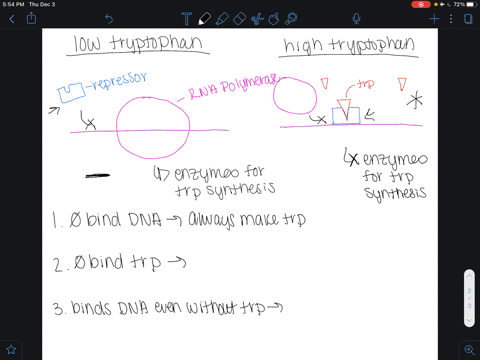 5:54 PM Thu Dec 3
72%
low tryptophan
high tryptophan
repressor
RNA polymerase
trp
enzymes for
trp synthesis
enzymes
for trp
synthesis
1. Ø bind DNA → always make trp
2. Ø bind trp →
3. binds DNA even without trp →
2
/
3